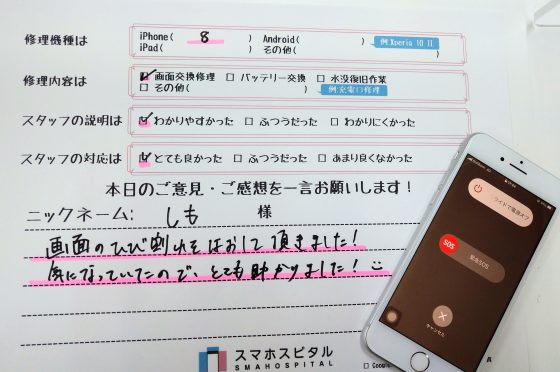 修理機種は
iPhone( 8 ) Android( ) 例:Xperia 10 II
iPad( ) その他( )
修理内容は
画面交換修理 □ バッテリー交換 □ 水没復旧作業
□ その他( ) 例:充電口修理
スタッフの説明は わかりやすかった □ ふつうだった □ わかりにくかった
スタッフの対応は とても良かった □ ふつうだった □ あまり良くなかった
本日のご意見・ご感想を一言お願いします!
ニックネーム: しも 様
画面のひび割れをなおして頂きました!
気になっていたので、とても助かりました!
スマホスピタル
SMAHOSPITAL
スライドで電源オフ
SOS 緊急SOS
キャンセル